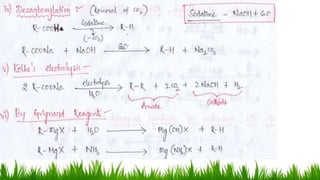 iv) Decarboxylation :- (Removal of CO₂) Sodalime - NaOH + CaO
R-COONa Sodalime (-CO₂) → R-H
R-COONa + NaOH CaO → R-H + Na₂CO₃
v) Kolbe's electrolysis -
2 R-COONa electrolysis H₂O → R-R + 2CO₂ + 2NaOH + H₂
Anode Cathode
vi) By Grignard Reagent -
R-MgX + H₂O → Mg(OH)X + R-H
R-MgX + NH₃ → Mg(NH₂)X + R-H